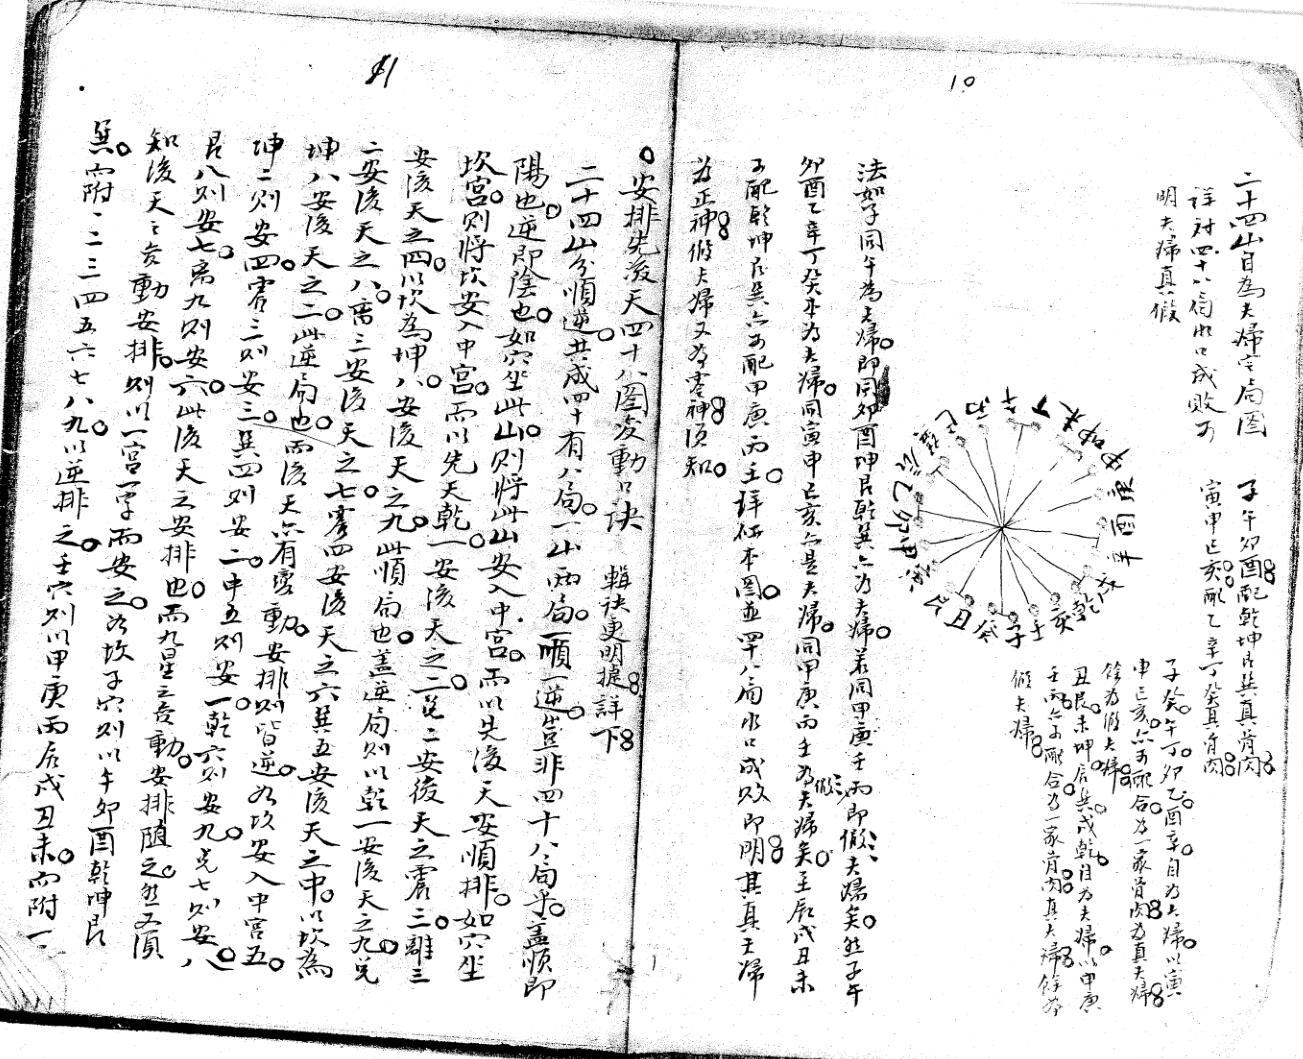 10
二十四山自為夫婦定局圖
詳对四十八局水口成敗可
明夫婦真假
子午卯酉配乾坤艮巽真骨肉
寅申巳亥配乙辛丁癸真骨肉
子癸午丁卯乙酉辛自為夫婦以寅
申巳亥亦可配合為一家骨肉為真夫婦
餘為假夫婦
丑艮未坤辰巽戌乾自為夫婦以甲庚
壬丙亦可配合為一家骨肉真夫婦餘為
假夫婦
法如子同午為夫婦即同卯酉坤艮乾巽亦為夫婦若同甲庚壬丙即假夫婦矣然子午
卯酉乙辛丁癸本為夫婦同寅申巳亥亦是夫婦同甲庚丙壬為假夫婦矣至辰戌丑未
可配乾坤艮巽亦可配甲庚丙壬詳在本圖並四十八局水口成敗即明其真夫婦
為正神假夫婦又為零神須知
11
安排先後天四十八圖変動口訣 輯抉更明捷詳下
二十四山分順逆共成四十有八局一山兩局一順一逆豈非四十八局乎蓋順即
陽也逆即陰也如穴坐此山則將此山安入中宮而以先後天安順排如穴坐
坎宮則將坎安入中宮而以先天乾一安後天之二兌二安後天之震三離三
安後天之四以坎為坤八安後天之九此順局也蓋逆局則以乾一安後天之九兌
二安後天之八离三安後天之七震四安後天之六巽五安後天之中以坎為
坤八安後天之二此逆局也而後天亦有変動安排則皆逆如坎安入中宮五
坤二則安四震三則安三巽四則安二中五則安一乾六則安九兌七則安八
艮八則安七离九則安六此後天之安排也而九星之変動安排随之然又須
知後天之変動安排則以一宮一字而安之如坎子穴則以午卯酉乾坤艮
巽而附一二三四五六七八九以逆排之壬穴則以甲庚丙辰戌丑未而附一